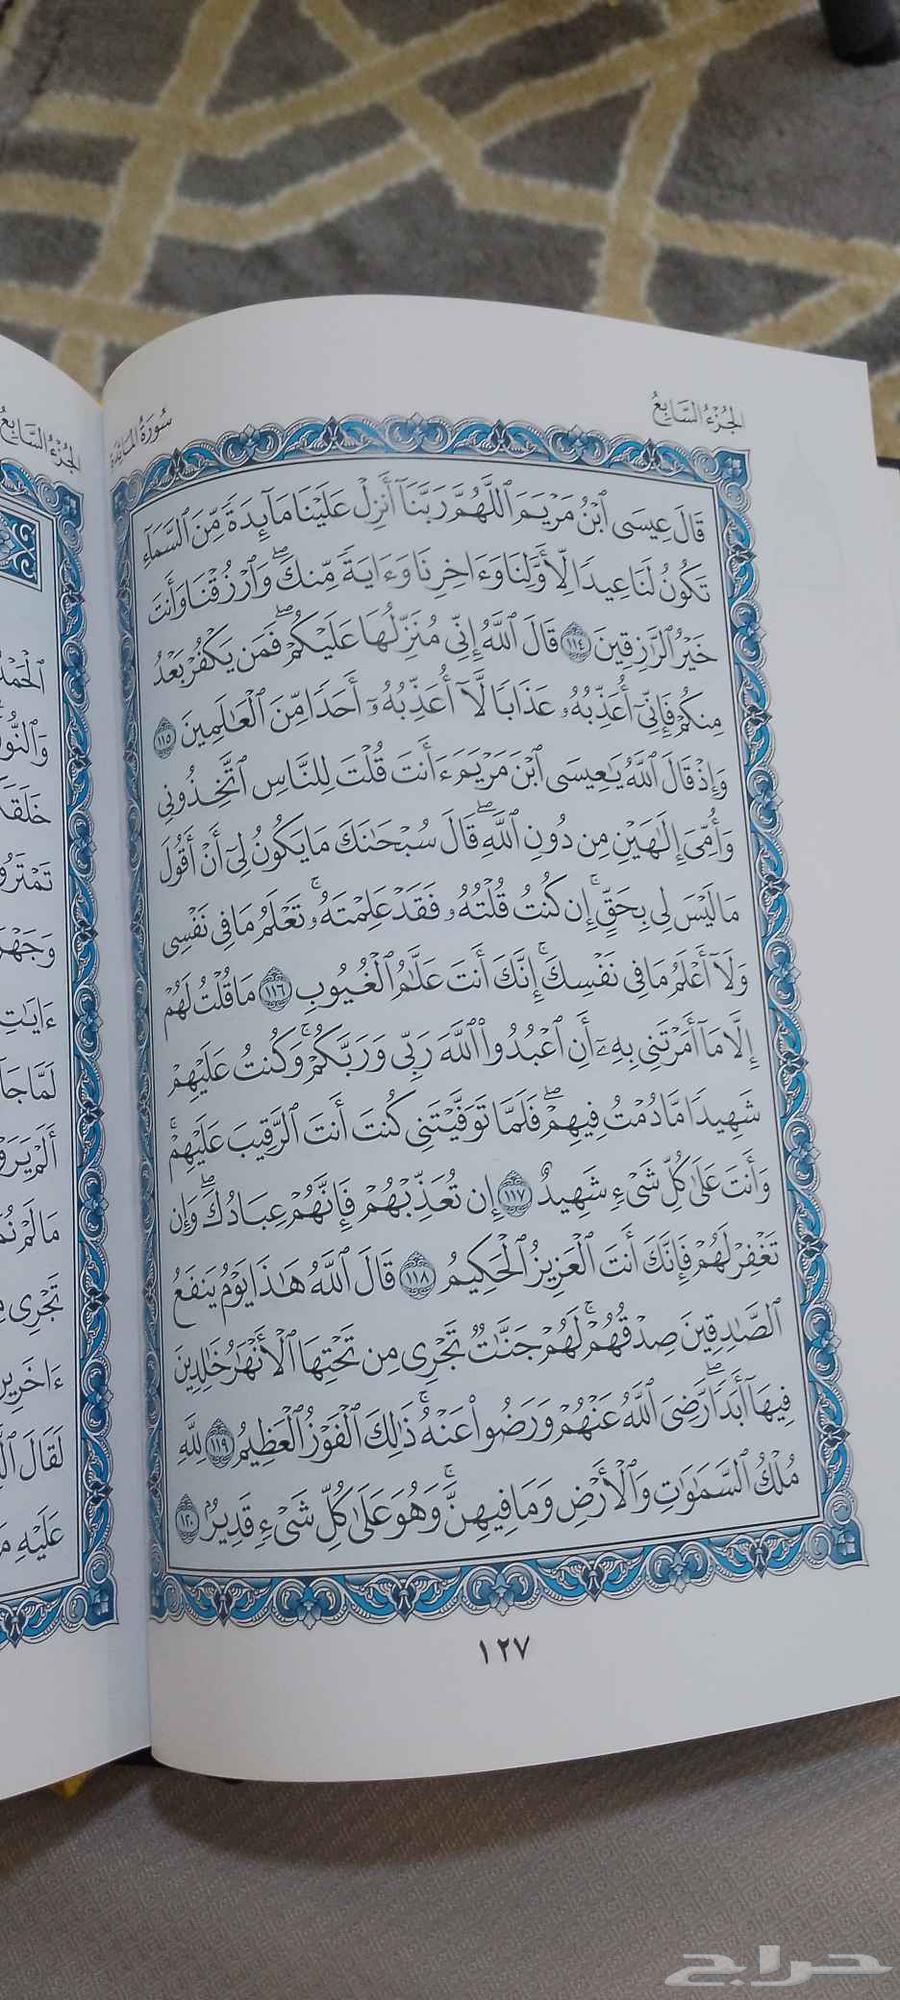 الجزء السابع
سورة المائدة
قَالَ عِيسَى ٱبْنُ مَرْيَمَ ٱللَّهُمَّ رَبَّنَآ أَنزِلْ عَلَيْنَا مَآئِدَةً مِّنَ ٱلسَّمَآءِ
تَكُونُ لَنَا عِيدًا لِّأَوَّلِنَا وَءَاخِرِنَا وَءَايَةً مِّنكَۖ وَٱرْزُقْنَا وَأَنتَ
خَيْرُ ٱلرَّٰزِقِينَ ١١٤ قَالَ ٱللَّهُ إِنِّي مُنَزِّلُهَا عَلَيْكُمْۖ فَمَن يَكْفُرْ بَعْدُ
مِنكُمْ فَإِنِّيٓ أُعَذِّبُهُۥ عَذَابًا لَّآ أُعَذِّبُهُۥٓ أَحَدًا مِّنَ ٱلْعَٰلَمِينَ ١١٥
وَإِذْ قَالَ ٱللَّهُ يَٰعِيسَى ٱبْنَ مَرْيَمَ ءَأَنتَ قُلْتَ لِلنَّاسِ ٱتَّخِذُونِي
وَأُمِّيَ إِلَٰهَيْنِ مِن دُونِ ٱللَّهِۖ قَالَ سُبْحَٰنَكَ مَا يَكُونُ لِيٓ أَنْ أَقُولَ
مَا لَيْسَ لِي بِحَقٍّۚ إِن كُنتُ قُلْتُهُۥ فَقَدْ عَلِمْتَهُۥۚ تَعْلَمُ مَا فِي نَفْسِي
وَلَآ أَعْلَمُ مَا فِي نَفْسِكَۚ إِنَّكَ أَنتَ عَلَّٰمُ ٱلْغُيُوبِ ١١٦ مَا قُلْتُ لَهُمْ
إِلَّا مَآ أَمَرْتَنِي بِهِۦٓ أَنِ ٱعْبُدُوا۟ ٱللَّهَ رَبِّي وَرَبَّكُمْۚ وَكُنتُ عَلَيْهِمْ
شَهِيدًا مَّا دُمْتُ فِيهِمْۖ فَلَمَّا تَوَفَّيْتَنِي كُنتَ أَنتَ ٱلرَّقِيبَ عَلَيْهِمْۚ
وَأَنتَ عَلَىٰ كُلِّ شَيْءٍ شَهِيدٌ ١١٧ إِن تُعَذِّبْهُمْ فَإِنَّهُمْ عِبَادُكَۖ وَإِن
تَغْفِرْ لَهُمْ فَإِنَّكَ أَنتَ ٱلْعَزِيزُ ٱلْحَكِيمُ ١١٨ قَالَ ٱللَّهُ هَٰذَا يَوْمُ يَنفَعُ
ٱلصَّٰدِقِينَ صِدْقُهُمْۚ لَهُمْ جَنَّٰتٌ تَجْرِي مِن تَحْتِهَا ٱلْأَنْهَٰرُ خَٰلِدِينَ
فِيهَآ أَبَدًاۖ رَّضِيَ ٱللَّهُ عَنْهُمْ وَرَضُوا۟ عَنْهُۚ ذَٰلِكَ ٱلْفَوْزُ ٱلْعَظِيمُ ١١٩ لِلَّهِ
مُلْكُ ٱلسَّمَٰوَٰتِ وَٱلْأَرْضِ وَمَا فِيهِنَّۚ وَهُوَ عَلَىٰ كُلِّ شَيْءٍ قَدِيرٌۢ ١٢٠
١٢٧
الجزء السابع
وَٱلنُّو
خَلَقَ
تَمْتَرُو
وَجَهْرَ
ءَايَٰتِ
لَمَّا جَآ
أَلَمْ يَرَوْ
مَا لَمْ نُمَ
تَجْرِي مِ
ءَاخَرِينَ
لَقَالَ ٱلَّ
عَلَيْهِ مَ
حراج